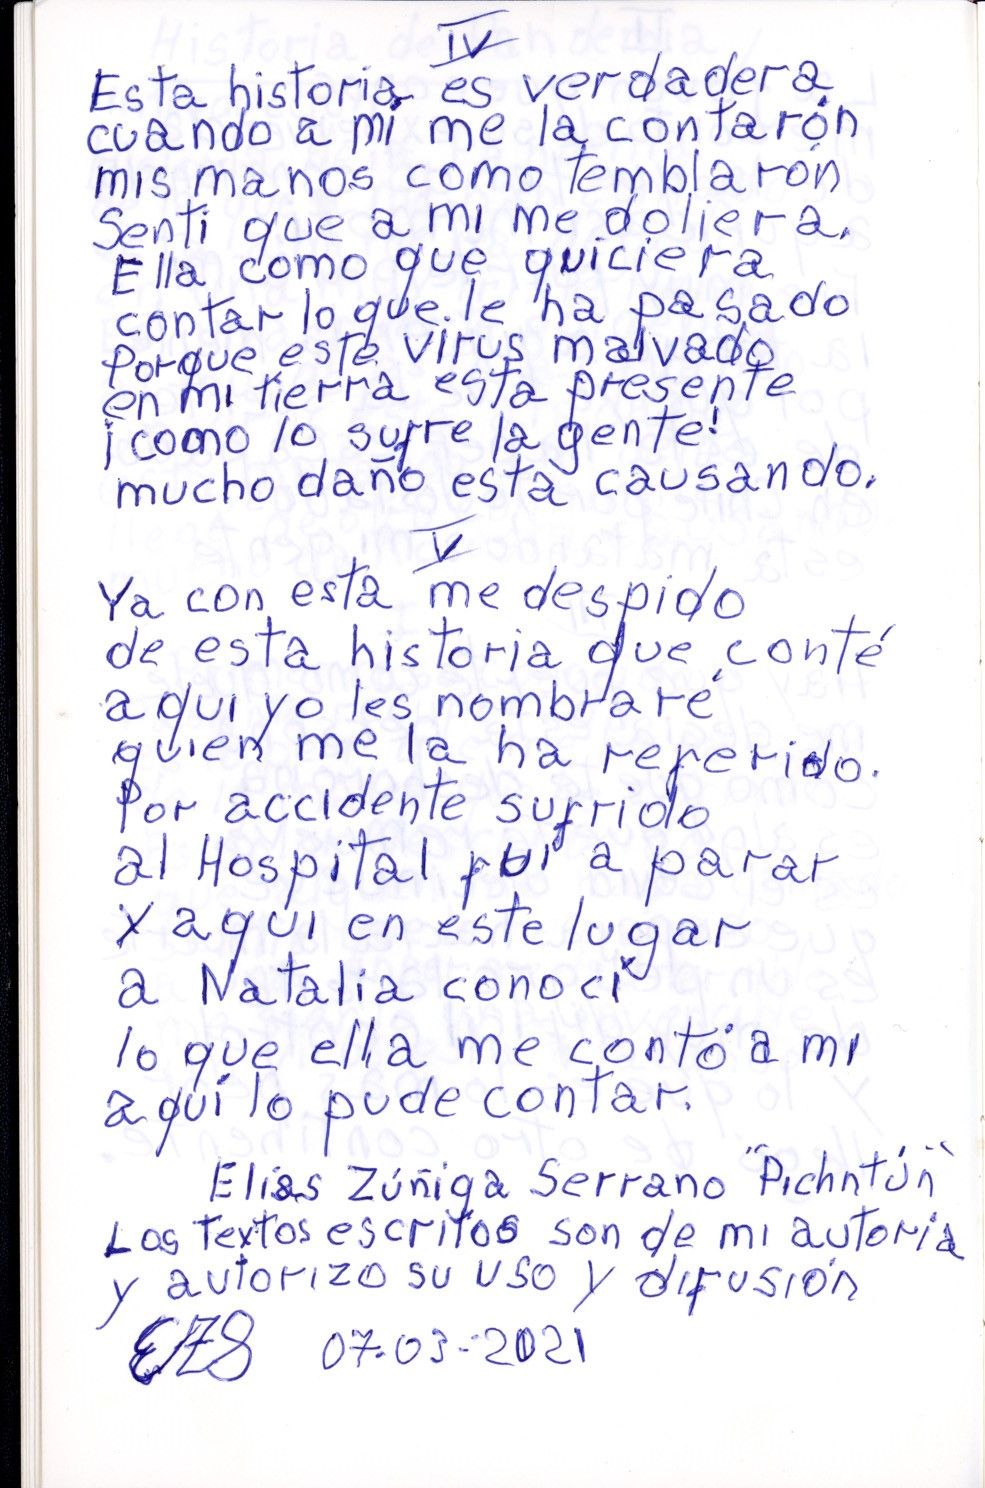 IV
Esta historia es verdadera
cuando a mí me la contarón
mis manos como temblarón
Senti que a mi me doliera.
Ella como que quiciera
contar lo que le ha pasado
Porque este virus malvado
en mi tierra esta presente
¡como lo sufre la gente!
mucho daño está causando.
V
Ya con esta me despido
de esta historia que conté
aqui yo les nombraré
quien me la ha referido.
Por accidente sufrido
al Hospital fui a parar
Y aqui en este lugar
a Natalia conocí
lo que ella me contó a mi
aquí lo pude contar.
Elias Zúñiga Serrano "Pichntún"
Los Textos escritos son de mi autoria
y autorizo su uso y difusión
EZS 07-03-2021